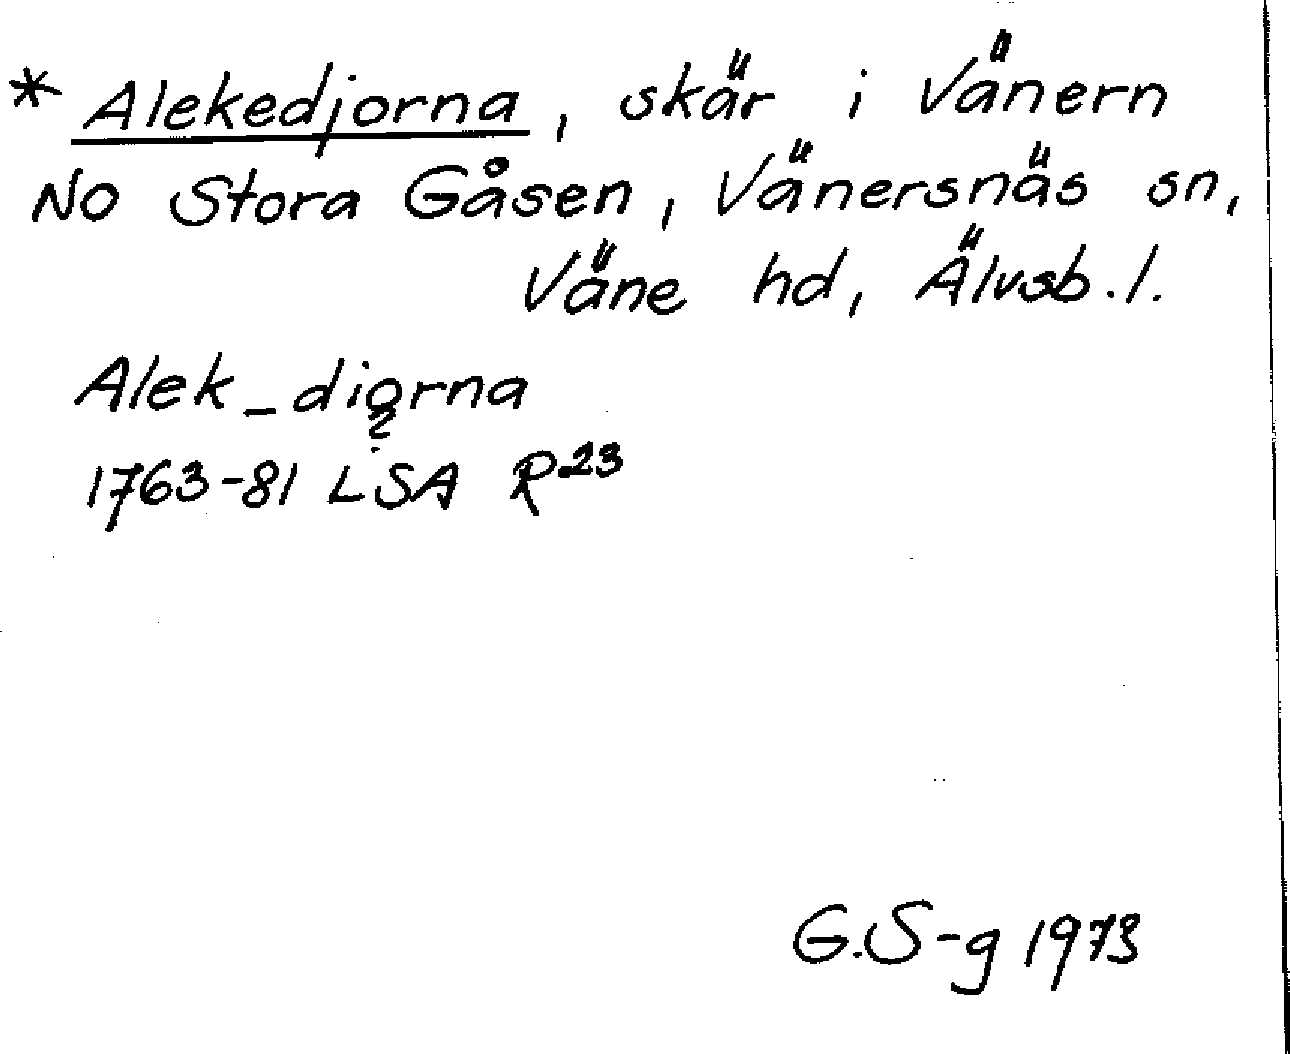 * Alekedjorna, skär i Vänern
NO Stora Gåsen, Vänersnäs sn,
Väne hd, Älvsb.l.
Alek_diorna
?
1763-81 LSA R23
G.S-g 1973